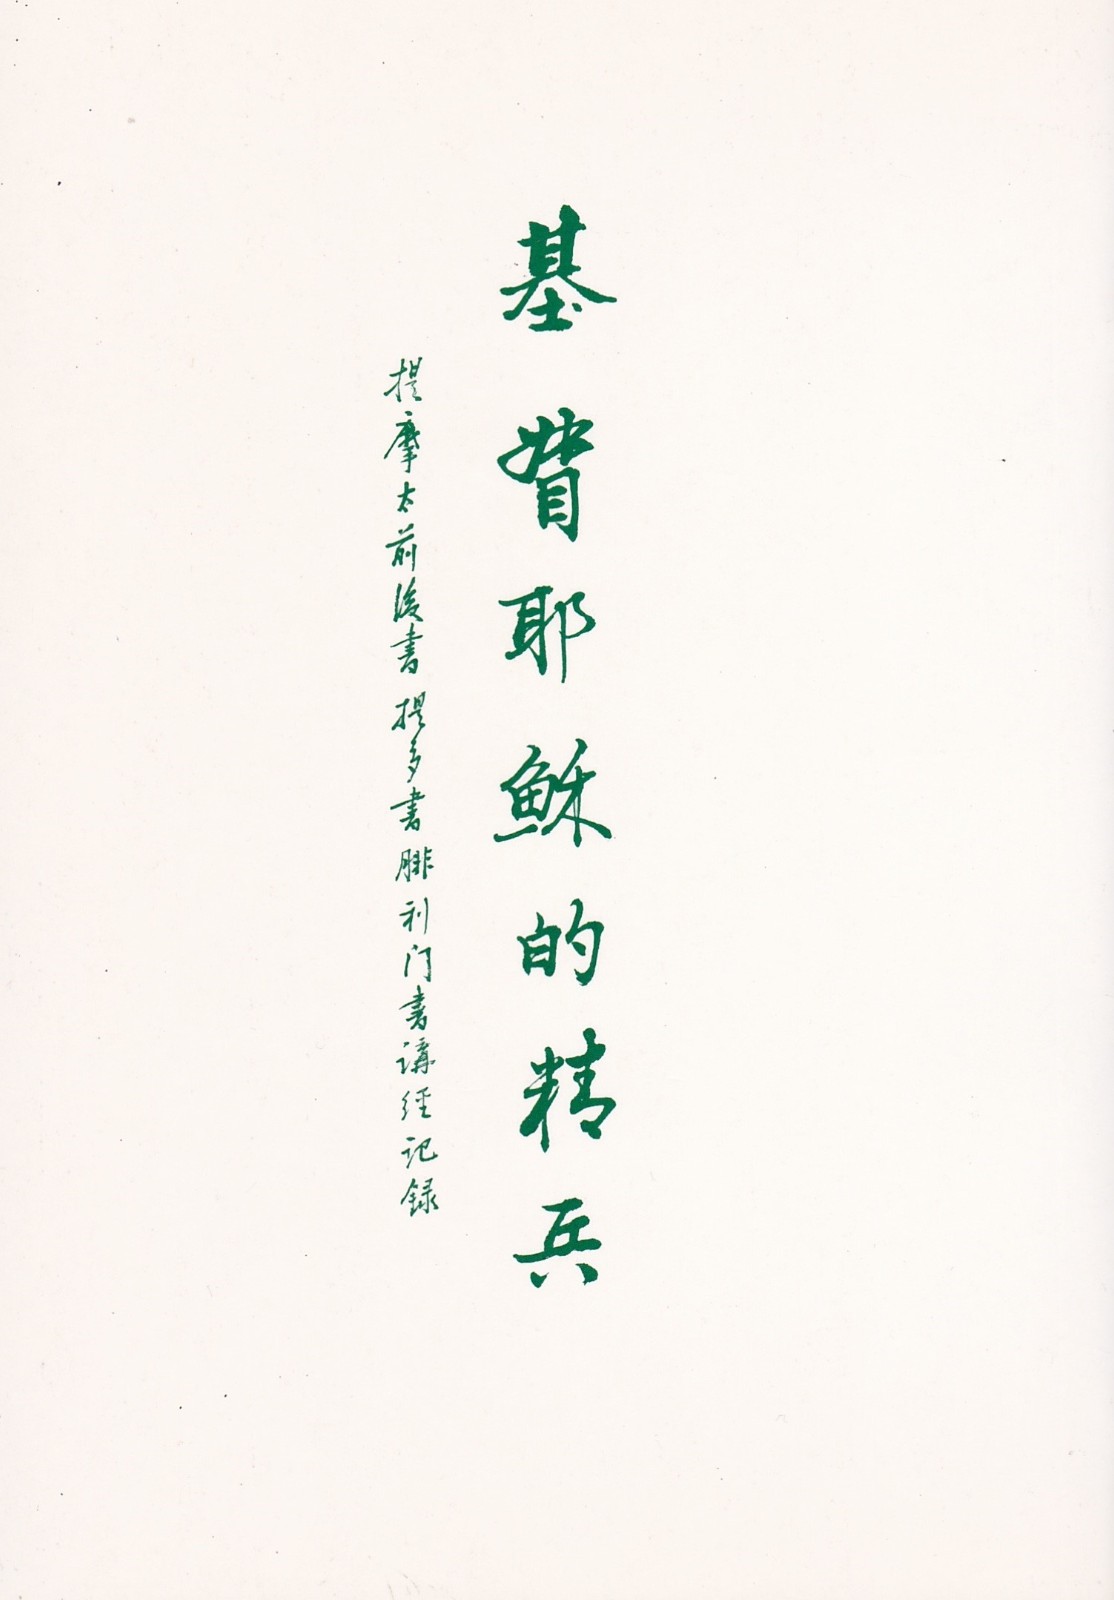 基督耶穌的精兵
提摩太前後書提多書腓利门書講經记録